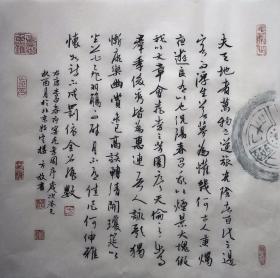 夫天地者萬物之逆旅光陰者百代之過
客而浮生若夢為歡幾何古人秉燭
夜遊良有以也況陽春召我以煙景大塊假
我以文章會桃李芳園序天倫之樂事
群季俊秀皆為惠連吾人詠歌獨
慚康樂幽賞未已高談轉清開瓊筵以
坐花飛羽觴而醉月不有佳作何伸雅
懷如詩不成罰依金谷酒數
右唐李白春夜宴桃李園序歲次
月於北京